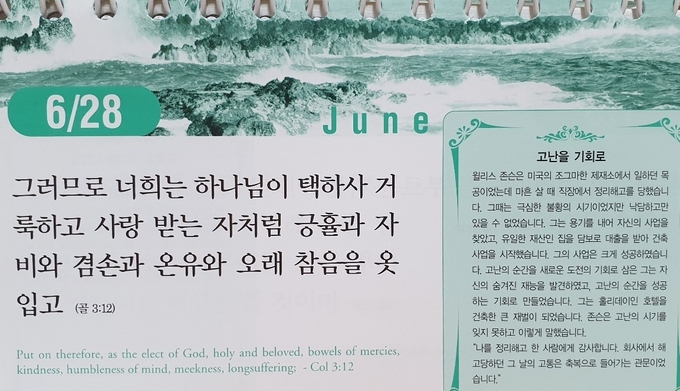 6/28
June
그러므로 너희는 하나님이 택하사 거
룩하고 사랑 받는 자처럼 긍휼과 자
비와 겸손과 온유와 오래 참음을 옷
입고 (골 3:12)
Put on therefore, as the elect of God, holy and beloved, bowels of mercies,
kindness, humbleness of mind, meekness, longsuffering; - Col 3:12
고난을 기회로
윌리스 존슨은 미국의 조그마한 제재소에서 일하던 목
공이었는데 마흔 살 때 직장에서 정리해고를 당했습니
다. 그때는 극심한 불황의 시기이었지만 낙담하고만
있을 수 없었습니다. 그는 용기를 내어 자신의 사업을
찾았고, 유일한 재산인 집을 담보로 대출을 받아 건축
사업을 시작했습니다. 그의 사업은 크게 성공하였습니
다. 고난의 순간을 새로운 도전의 기회로 삼은 그는 자
신의 숨겨진 재능을 발견하였고, 고난의 순간을 성공
하는 기회로 만들었습니다. 그는 홀리데이인 호텔을
건축한 큰 재벌이 되었습니다. 존슨은 고난의 시기를
잊지 못하고 이렇게 말했습니다.
"나를 정리해고 한 사람에게 감사합니다. 회사에서 해
고당하던 그 날의 고통은 축복으로 들어가는 관문이었
습니다."